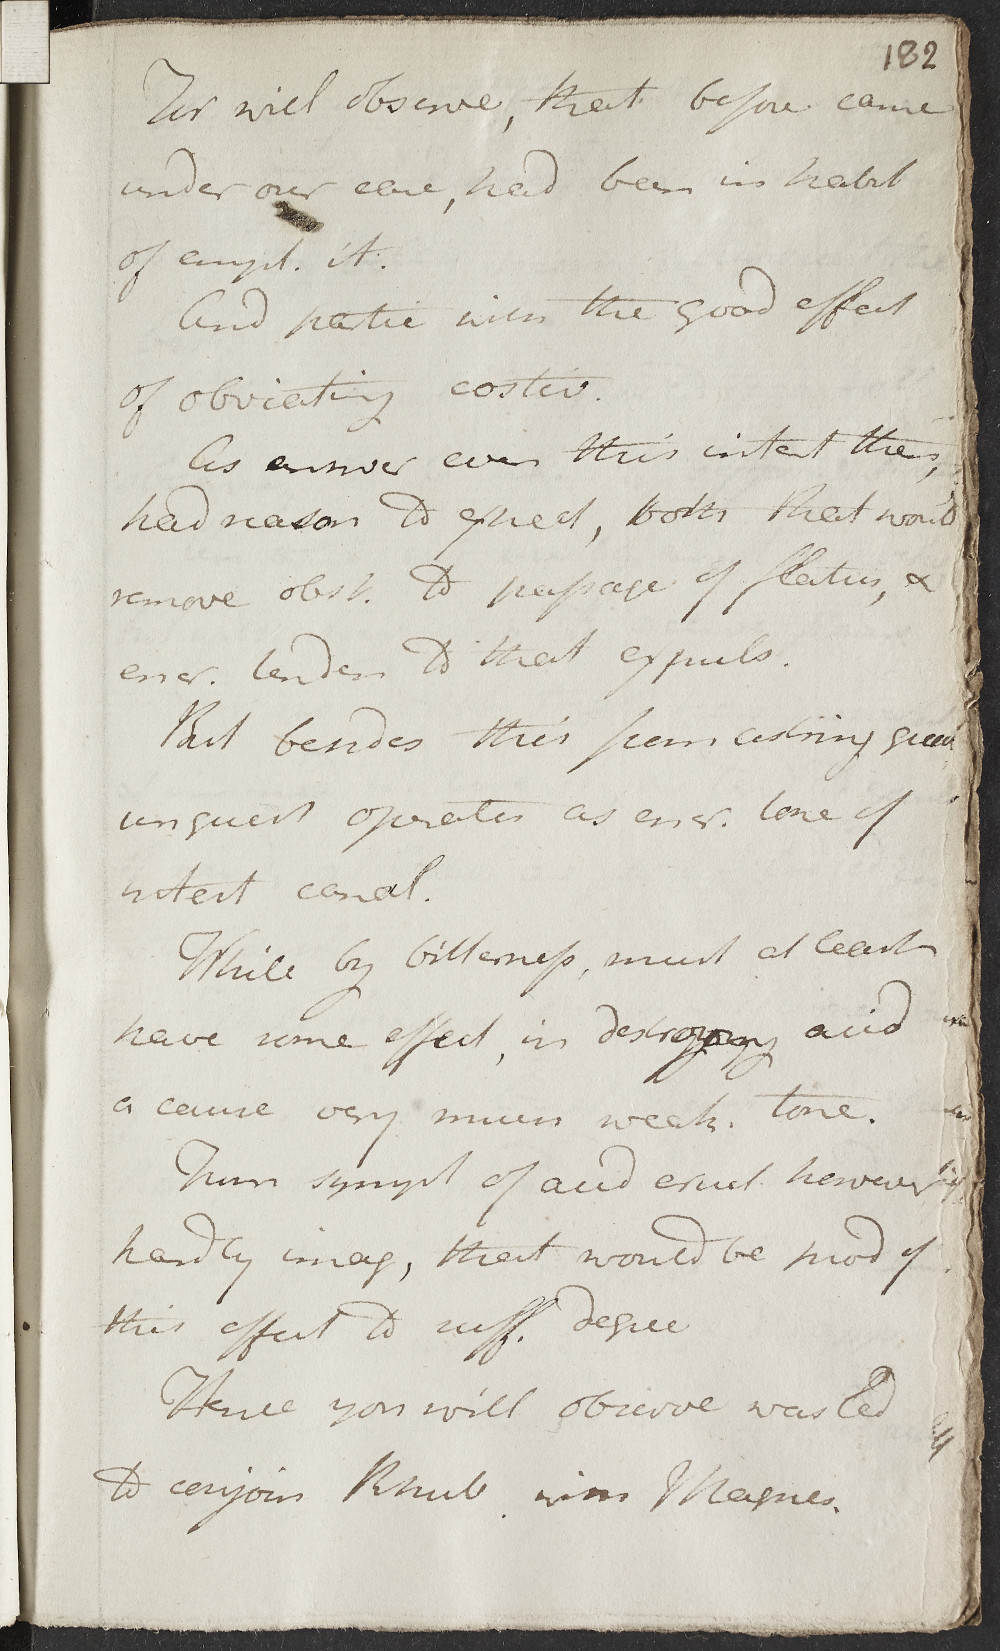 182
For will observe, that before came
under our care, had been in habit
of empl. it.
And partic with the good effect
of obviating costiv.
As answer even this intent then,
had reason to expect, both that would
remove obst. to passage of flatus, &
ener. tenden to that expuls.
But besides this from astring
unquest operates as ener. tone of
intest canal.
While by bitterness, must at least
have some effect, in destroying acid
a cause very much weak. tone.
From sympt of acid eruct. however
hardly imag, that would be prod of
this effect to suff. degree
Hence you will observe was led
to conjoin Rhub with Magnes.